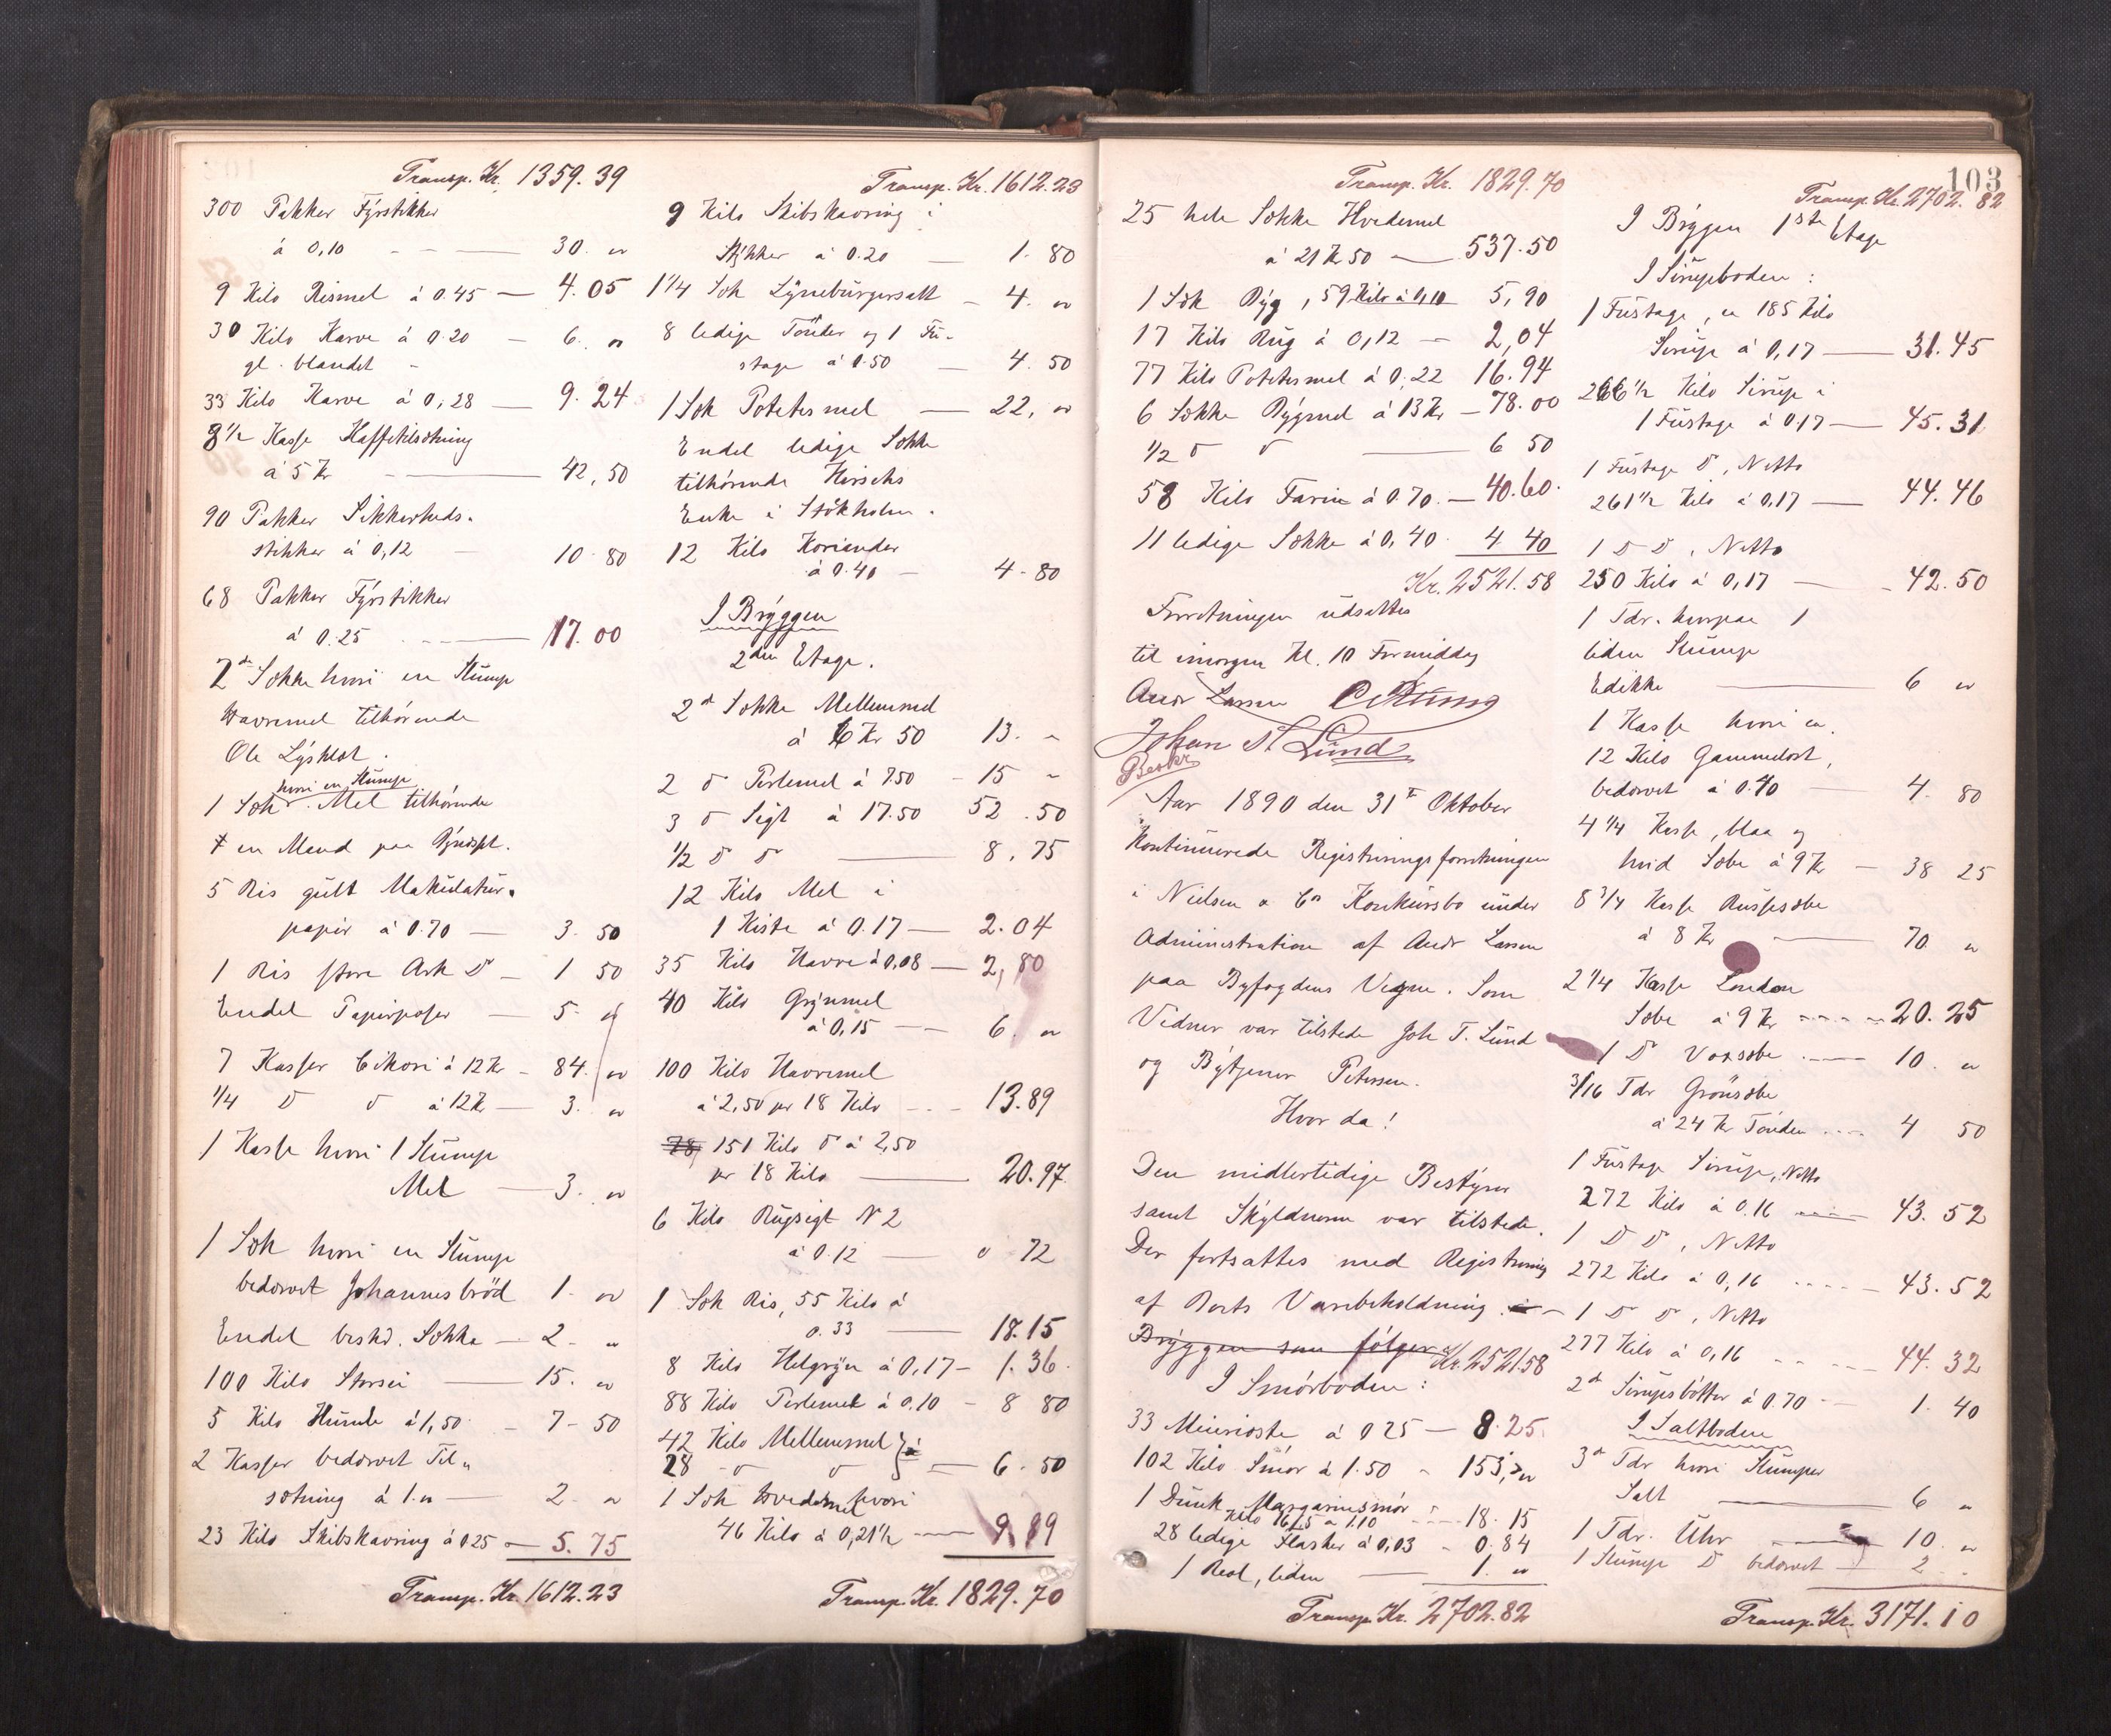 Transp. Kr. 1359.39
300 Pakker Fyrstikker
à 0,10 — 30. "
9 Kilo Rismel à 0.45 — 4.05
30 Kilo Karve à 0.20 — 6. "
gl. blandet -
33 Kilo Karve à 0,28 — 9.24
8 1/2 Kasse Kaffetilsætning
à 5 Kr — 42,50
90 Pakker Sikkerheds-
stikker à 0,12 — 10.80
68 Pakker Fyrstikker
à 0.25 — 17.00
2de Sække hvori en Stump
Havremel tilhørende
Ole
hvori en Stump
1 Sæk Mel tilhørende
en Mand paa
5 Ris gult Makulatur-
papir à 0.70 — 3.50
1 Ris store Ark D — 1 50
Endel Papirposer — 5. "
7 Kasser Cikori à 12 Kr — 84. "
1/4 D D à 12 Kr — 3. "
1 Kasse hvori 1 Stump
Mel — 3. "
1 Sæk hvori en Stump
bedærvet Johannesbrød 1. "
Endel beskd. Sække — 2. "
100 Kilo Storsei — 15. "
5 Kilo Humle à 1,50 — 7.50
2 Kasser bedærvet Til-
sætning à 1." — 2 "
23 Kilo Skibskavring à 0 25 — 5.75
Transp. Kr. 1612.23
Transp. Kr. 1612.23
9 Kilo Skibskavring i
Stykker à 0.20 — 1.80
1 1/4 Sæk Lyneburgersalt — 4. "
8 ledige Tønder og 1 Fu-
stage à 0.50 — 4.50
1 Sæk Potetesmel — 22, "
Endel ledige Sække
tilhørende Hirschs
Enke i Stokholm.
12 Kilo Koriander
à 0.40 — 4.80
I Bryggen
2den Etage.
2de Sække Mellemmel
à 6 Kr 50 13. "
2 D Perlemel à 7.50 — 15 "
3 D Sigt à 17.50 52.50
1/2 D D — 8.75
12 Kilo Mel i
1 Kiste à 0.17 — 2.04
35 Kilo Havre à 0,08 — 2,80
40 Kilo Grynmel
à 0,15 — 6. "
100 Kilo Havremel
à 2,50 pr 18 Kilo — 13.89
78 151 Kilo D à 2,50
pr 18 Kilo — 20.97
6 Kilo Rugsigt N 2
à 0.12 — 0 72
1 Sæk Ris, 55 Kilo à
0.33 — 18.15
8 Kilo Helgryn à 0,17 — 1.36
88 Kilo Perlemel à 0.10 — 8 80
42 Kilo Mellemmel } à
28 - D D — 6.50
1 Sæk Hvedemel hvori
46 Kilo à 0,21 1/2 — 9.89
Transp. Kr. 1829.70
103
Transp. Kr. 1829.70
25 hele Sække Hvedemel
à 21 Kr 50 — 537.50
1 Sæk Byg, 59 Kilo à 0,10 5,90
17 Kilo Rug à 0,12 — 2,04
77 Kilo Potetesmel à 0,22 16.94
6 Sække Bygmel à 13 Kr — 78.00
1/2 D D — 6 50
58 Kilo Farin à 0.70 — 40.60
11 ledige Sække à 0,40 4 40
Kr. 2521.58
Forretningen udsattes
til imorgen Kl. 10 Formiddag
Andr Larsen
Johan T. Lund
Aar 1890 den 31te Oktober
kontinuerede Registreringsforretningen
i Nielsen & Co Konkursbo under
Administration af Andr Larsen
paa Byfogdens Vegne. Som
Vidner var tilstede Joh T. Lund
og Bytjener Petersen.
Hvor da!
Den midlertidige Bestyrer
samt Skyldneren var tilstede.
Der fortsattes med Registrering
af Boets Varebeholdning i
Bryggen som følger Kr. 2521.58
I Smørboden:
33 Meieriøste à 0 25 — 8.25
102 Kilo Smør à 1.50 — 153, "
1 Dunk Margarinsmør
Kilo 16,5 à 1.10 — 18.15
28 ledige Flasker à 0,03 — 0.84
1 Reol, liden — 1. "
Transp. Kr. 2702.82
Transp. Kr. 2702.82
I Bryggen 1ste Etage
I Sirupsboden:
1 Fustage, ca 185 Kilo
Sirup à 0,17 — 31.45
266 1/2 Kilo Sirup i
1 Fustage à 0.17 — 45.31
1 Fustage D, Netto
261 1/2 Kilo à 0,17 — 44.46
1 D D, Netto
250 Kilo à 0,17 — 42.50
1 Tdr. hvorpaa 1
liden Stump
Edikke — 6 "
1 Kasse hvori ca.
12 Kilo Gammelost,
bedærvet à 0.40 — 4.80
4 1/4 Kasse, blaa og
hvid Sæbe à 9 Kr — 38 25
8 3/4 Kasse Russesæbe
à 8 Kr — 70 "
2 1/4 Kasse London
Sæbe à 9 Kr — 20.25
1 D Voxsæbe — 10. "
3/16 Tdr Grønsæbe
à 24 Kr Tønden — 4 50
1 Fustage Sirup, Netto
272 Kilo à 0.16 — 43.52
1 D D, Netto
272 Kilo à 0,16 — 43.52
1 D D, Netto
277 Kilo à 0,16 — 44.32
2de Sirupsbøtter à 0.70 — 1.40
I Saltboden
3de Tdr hvori Stumper
Salt — 6 "
1 Tdr. Uhr — 10. "
1 Stump D bedærvet — 2 "
Transp. Kr. 3171.10